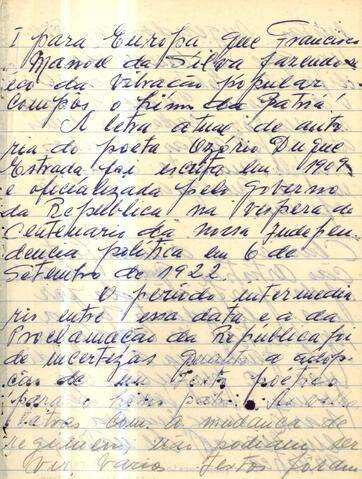 I para Europa que Francisco
Manoel da Silva fazendo-se
eco da vibração popular
compôs o hino da Patria!
A letra atual de auto-
ria do poeta Ozório Duque
Estrada foi escrita em 1909
e oficializada pelo Governo
da República na vespera do
Centenario da nossa Indepen-
dência política em 6 de
Setembro de 1922.
O período intermediá-
rio entre essa data e a da
Proclamação da República foi
de incertezas quanto a adop-
ção de um texto poético
para o hino patrio. As
com a mudança de
regimem não podiam ser
Varios textos foram